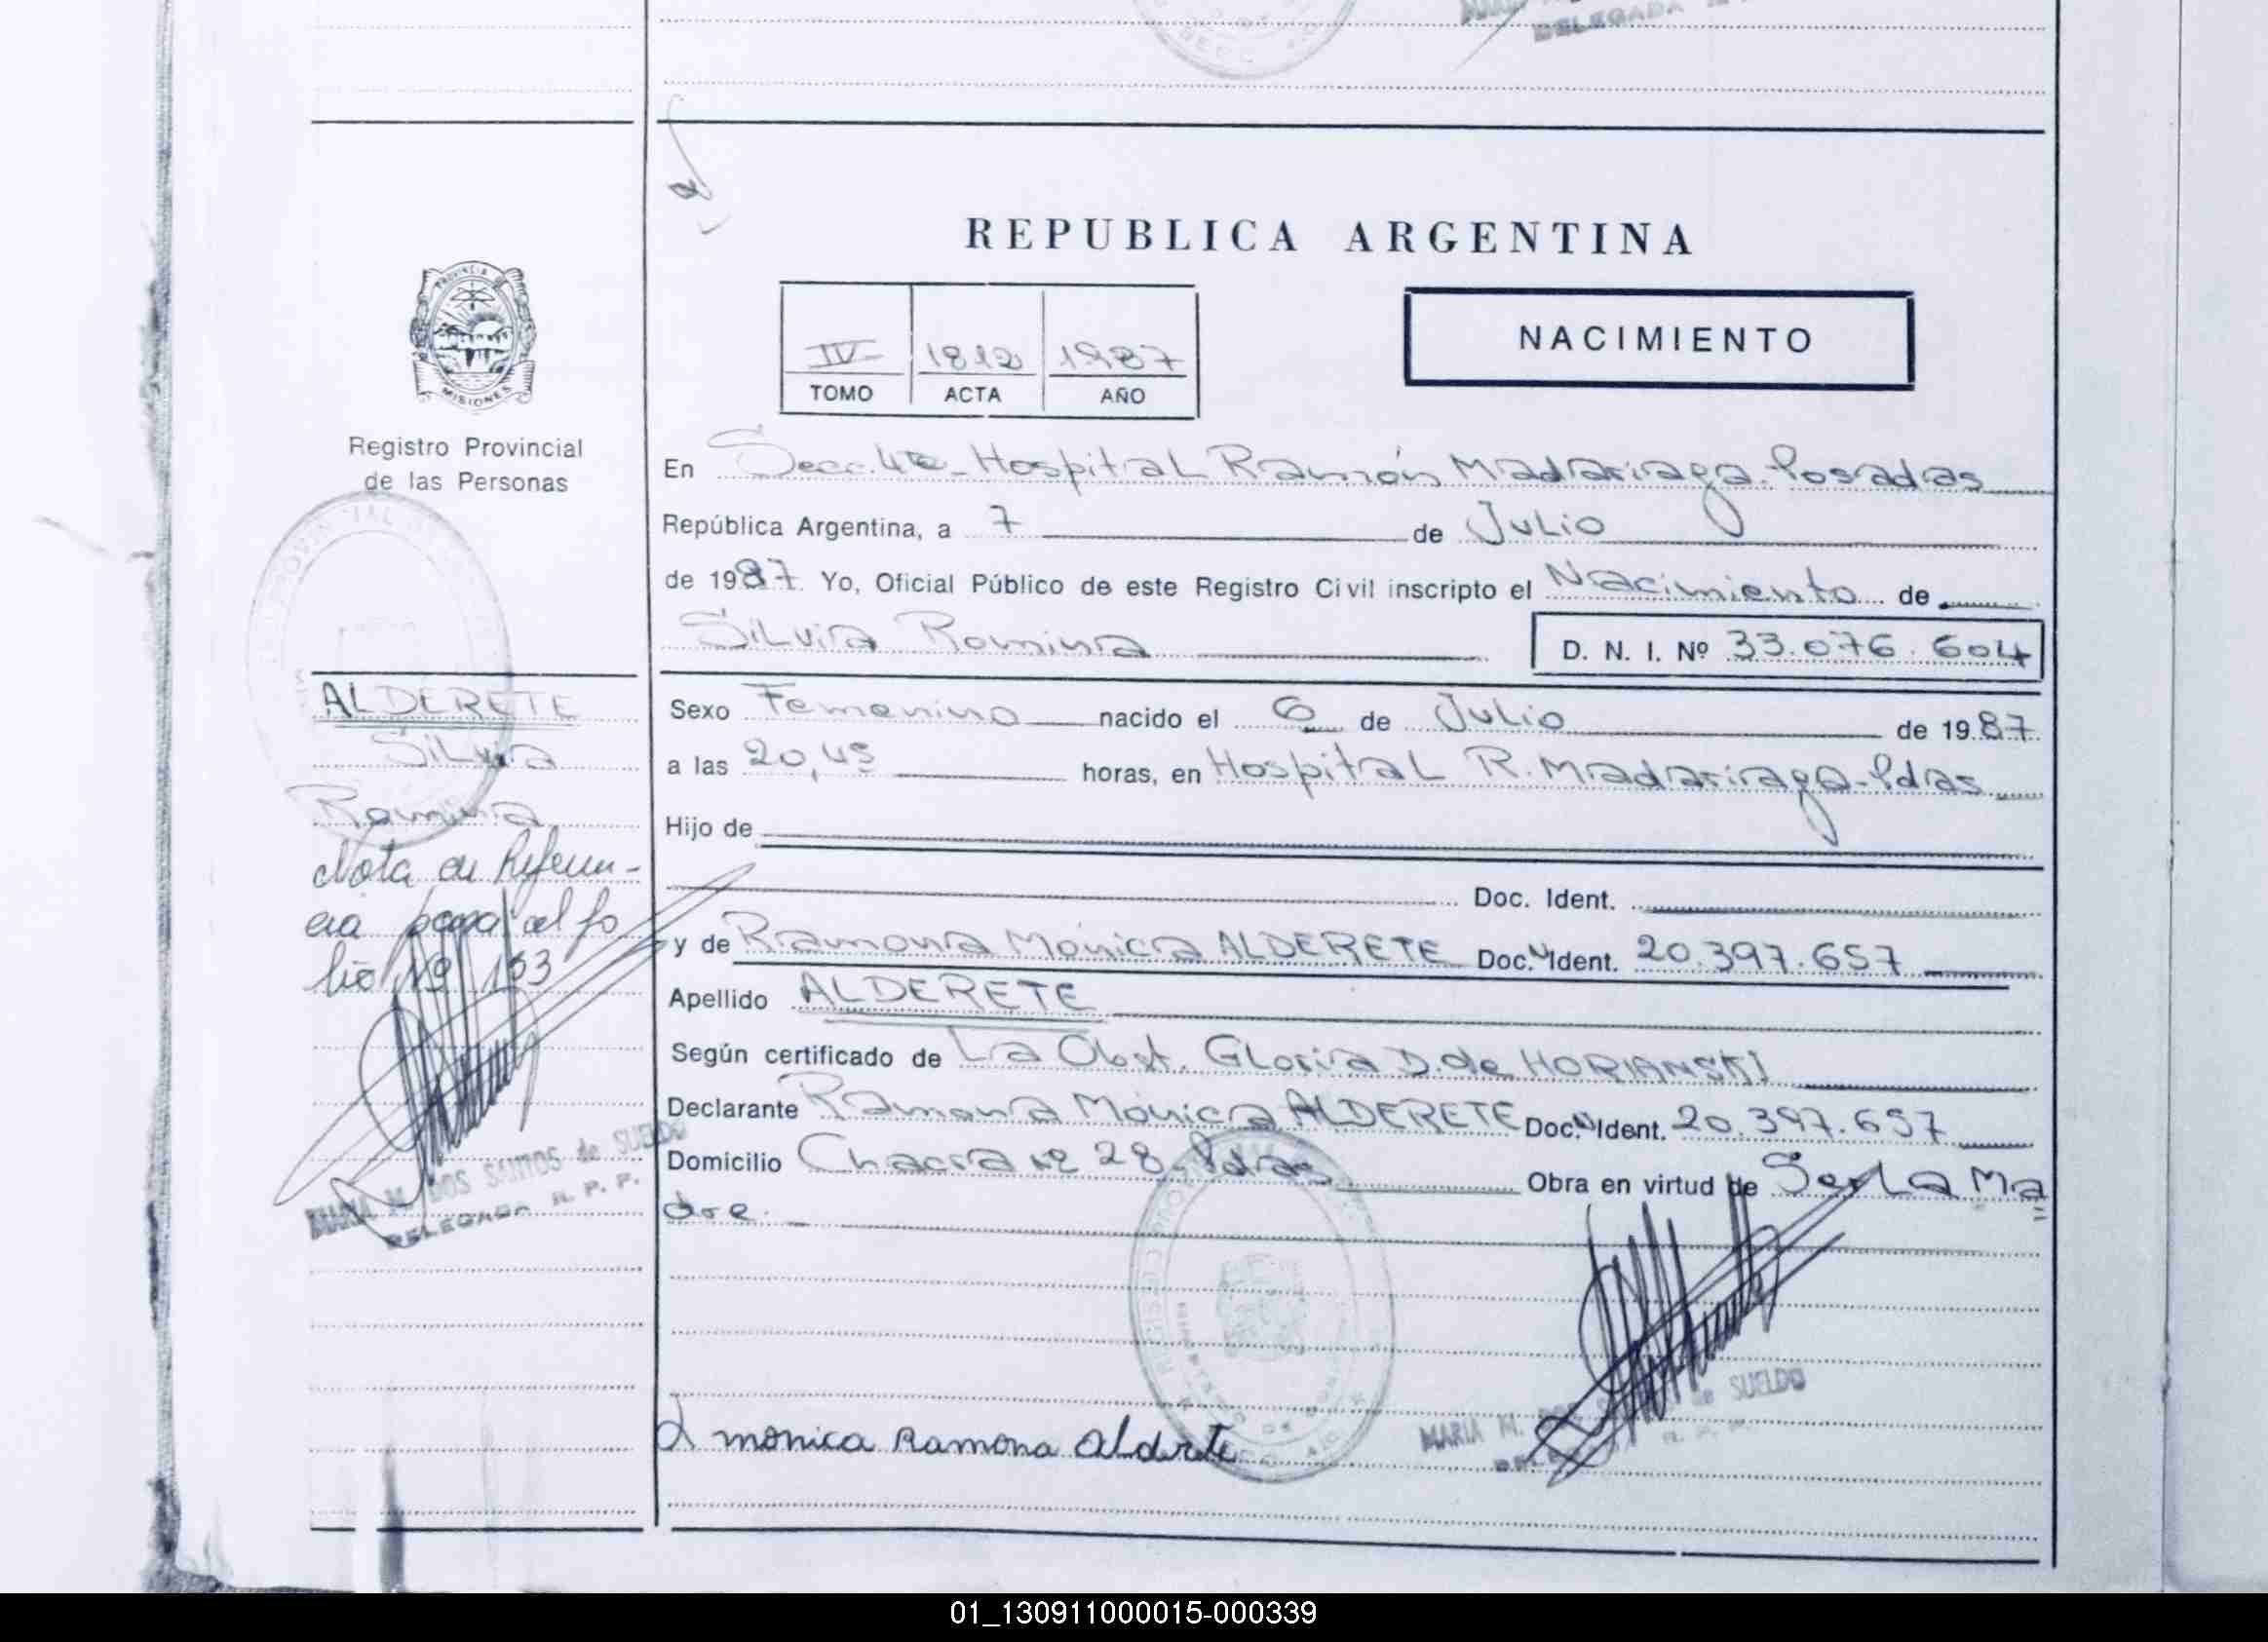 REPUBLICA ARGENTINA
NACIMIENTO
IV 1812 1987
TOMO ACTA AÑO
PROVINCIA DE
MISIONES
Registro Provincial
de las Personas
En Secc. 4ta - Hospital Ramón Madariaga - Posadas
República Argentina, a 7 de Julio
de 1987. Yo, Oficial Público de este Registro Civil inscripto el Nacimiento de
Silvia Romina D. N. I. Nº 33.076.604
ALDERETE
Silvia
Romina
Nota de Referen-
cia pasa al fo
lio Nº 153
MARIA M. DOS SANTOS de SUELDO
DELEGADA R. P. P.
Sexo Femenino nacido el 6 de Julio de 1987
a las 20,45 horas, en Hospital R. Madariaga - Pdas
Hijo de
Doc. Ident.
y de Ramona Mónica ALDERETE Doc. Ident. 20.397.657
Apellido ALDERETE
Según certificado de La Obst. Gloria D. de HORIANSKI
Declarante Ramona Mónica ALDERETE Doc. Ident. 20.397.657
Domicilio Chacra Nº 28 - Pdas Obra en virtud de Ser La Ma
dre.
monica Ramona Alderete
MARIA M. DOS SANTOS de SUELDO
DELEGADA R. P. P.
01_130911000015-000339